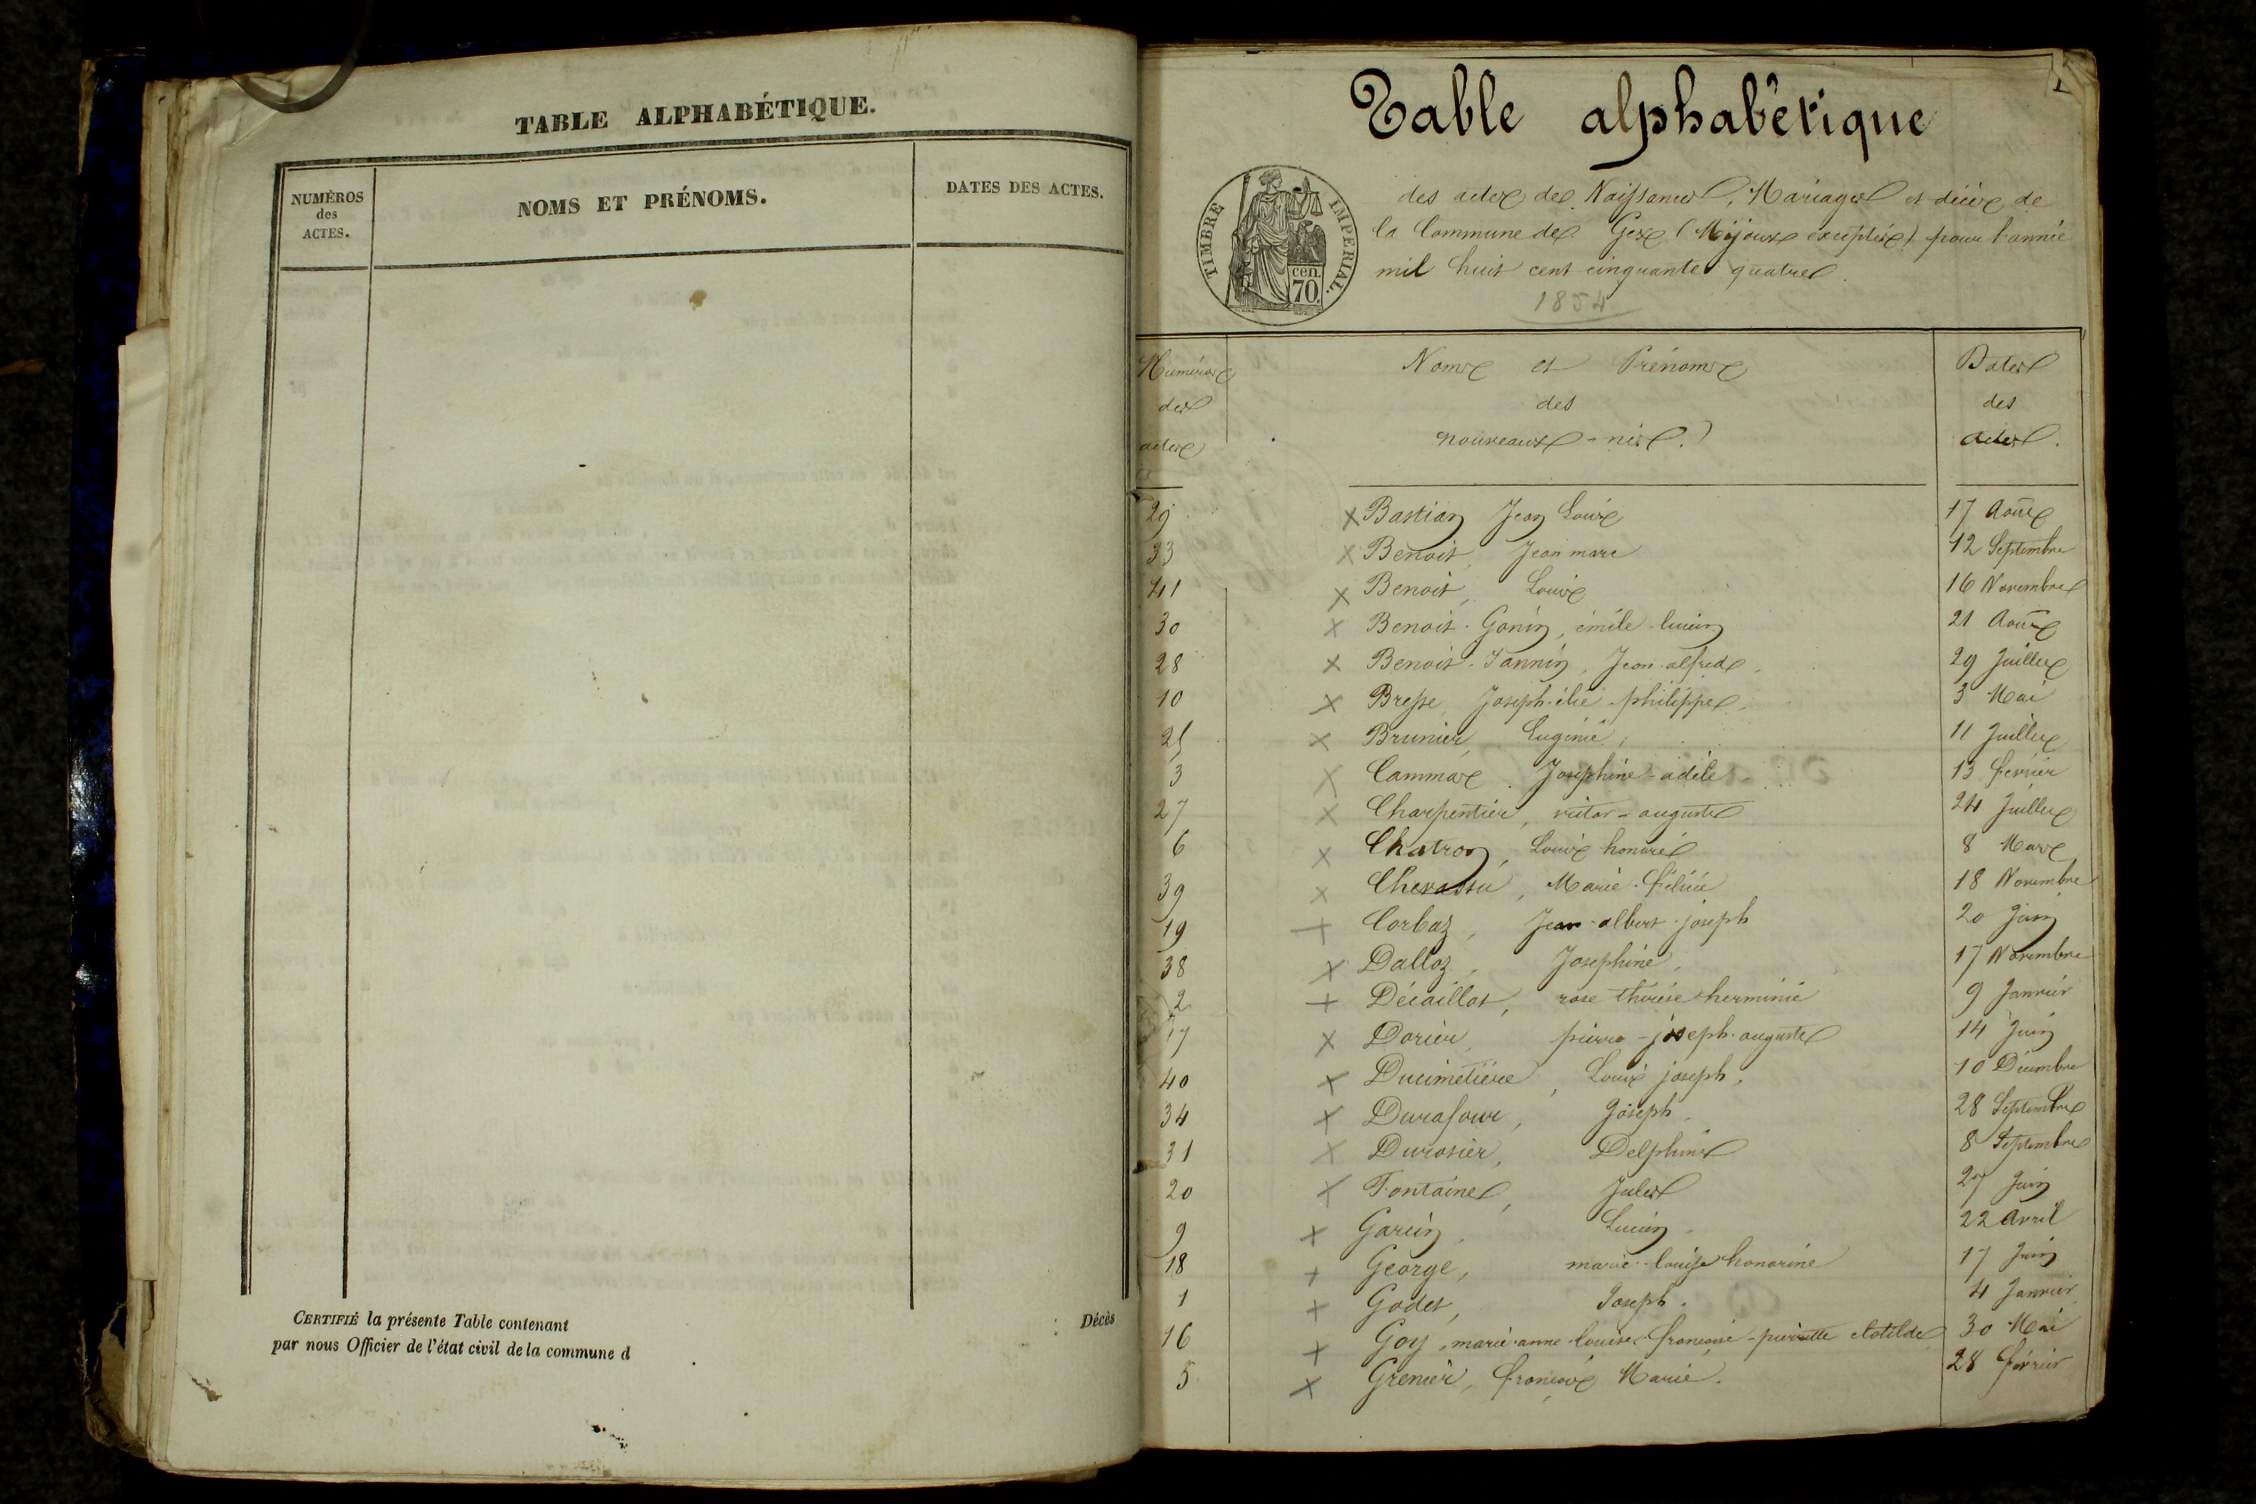 TABLE ALPHABÉTIQUE.
NUMÉROS
des
ACTES.
NOMS ET PRÉNOMS.
DATES DES ACTES.
CERTIFIÉ la présente Table contenant Décès
par nous Officier de l'état civil de la commune d
1
Table alphabétique
TIMBRE IMPERIAL.
cen.
70.
des actes de Naissances, Mariages et décès de
la Commune de Gex (Mijoux exceptée) pour l'année
mil huit cent cinquante quatre.
1854
Numéros
des
actes
Noms et Prénoms
des
nouveaux-nés.
Dates
des
actes.
29 x Bastian Jean Louis 17 Août
33 x Benoit, Jean marc 12 Septembre
41 x Benoit, Louis 16 Novembre
30 x Benoit-Gonin, émile-lucien 21 Août
28 x Benoit-Jannin, Jean-alfred. 29 Juillet
10 x Bresse Joseph-élie-philippe. 3 Mai
25 x Brunier, Eugénie, 11 Juillet
3 x Joséphine-adèle. 13 février
27 x Charpentier, victor-auguste 24 Juillet
6 x Chatron, Louis honoré 8 Mars
39 x Chevassu, Marie-félicie 18 Novembre
19 x Corbaz, Jean-albert-joseph 20 Juin
38 x Dalloz, Joséphine, 17 Novembre
2 x Décaillot, rose thérèse herminie 9 Janvier
17 x Dorier, pierre-joseph-auguste 14 Juin
40 x Ducimetière, Louis joseph, 10 Décembre
34 x Durafour, Joseph. 28 Septembre
31 x Durosier, Delphine 8 Septembre
20 x Fontaine, Jules 27 Juin
9 x Garcin, Lucien. 22 avril
18 x George, marie-louise honorine 17 Juin
1 x Godet, Joseph. 4 Janvier
16 x Goy, marie-anne-louise-françoise-pierrette clotilde 30 Mai
5 x Grenier, françois Marie. 28 février